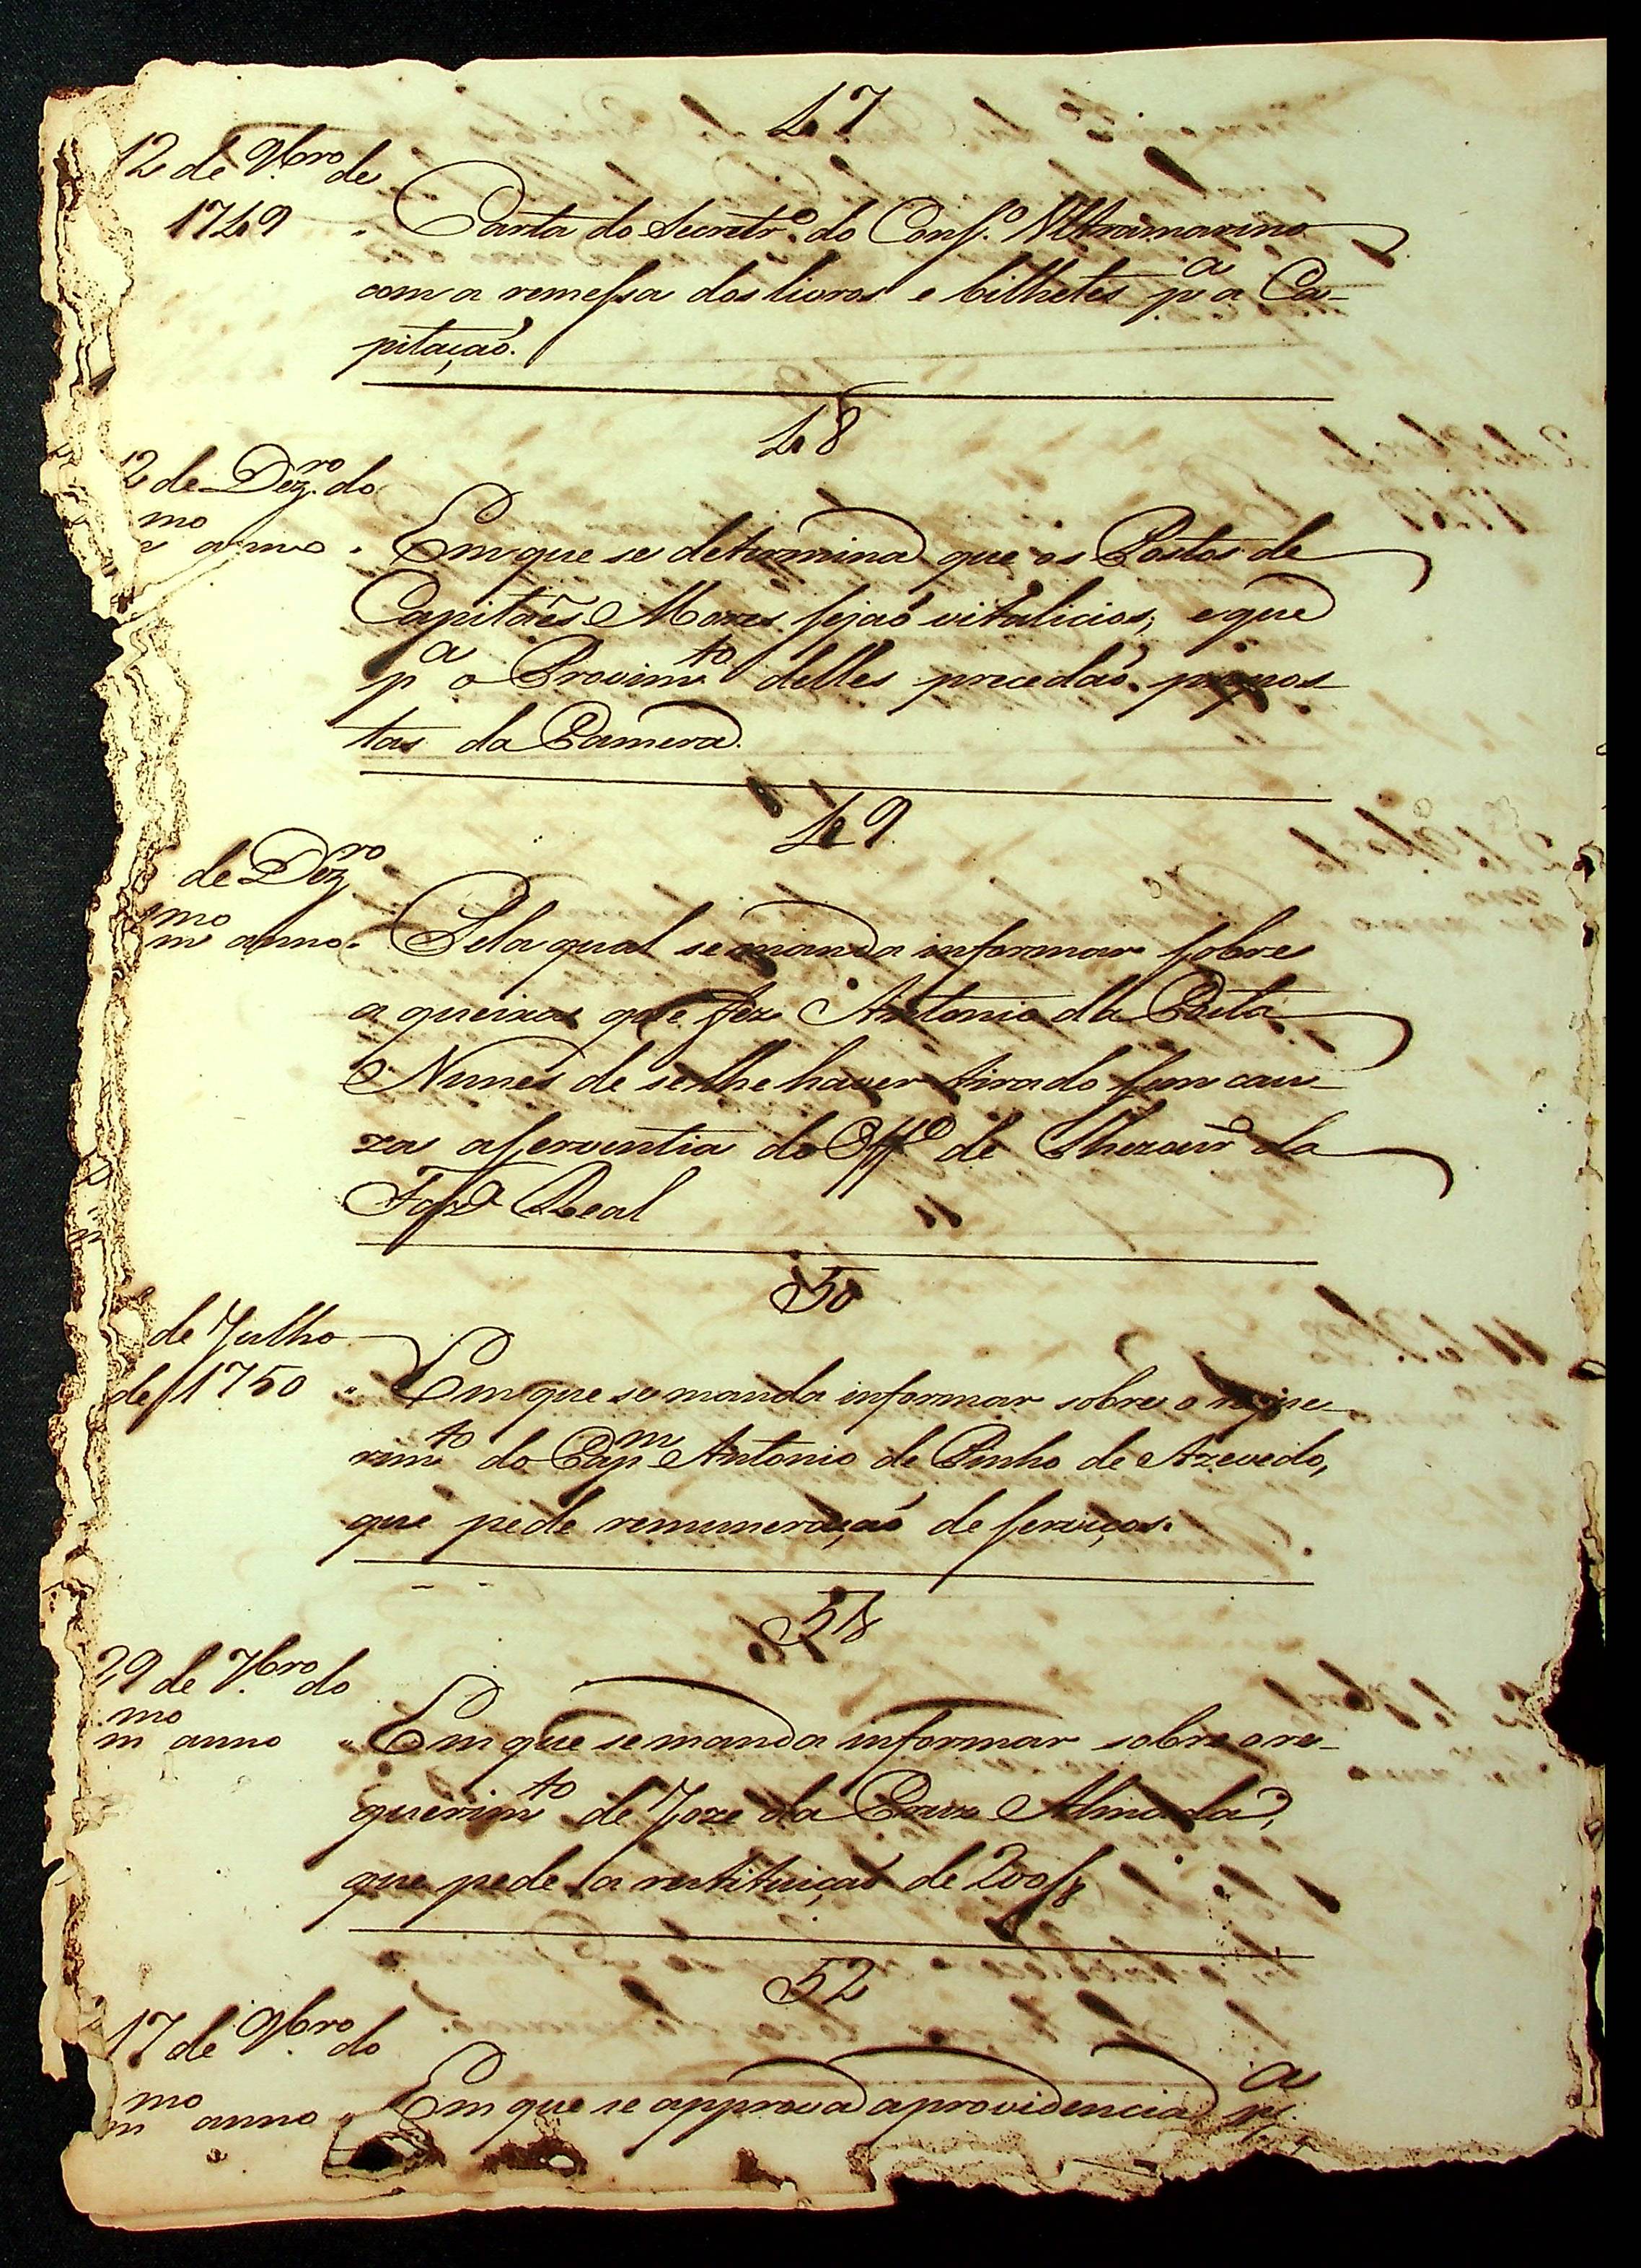 47
12 de 9bro de
1749 " Carta do Secretrº do Consº Ultramarino
com a remessa dos livros e bilhetes pª a Ca-
pitação.
48
12 de Dezro do
mmo anno " Em que se determina que os Postos de
Capitães Mores sejaõ vitalicios, e que
pª o Provimto delles precedaõ propos-
tas da Camera.
49
de Dezro
mmo anno " Pela qual se manda informar sobre
a queixa que fez Antonio da
Nunes de se lhe haver tirado sem cau-
za a serventia do Offº de Thezourº da
Fazdª Real
50
de Julho
de 1750 " Em que se manda informar sobre o reque-
rimto do Capm Antonio de Pinho de Azevedo,
que pede remuneraçaõ de serviços.
51
29 de 7bro do
mmo anno " Em que se manda informar sobre o re-
querimto de Joze da Cruz Almada,
que pede a restituiçaõ de 200/8
52
17 de 9bro do
mmo anno " Em que se approva a providencia pª